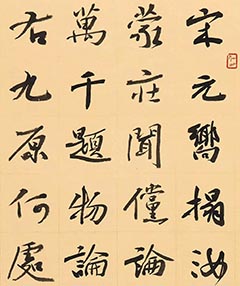 宋元嚮搨汝
蒙莊聞儻論
萬千題物論
右九原何處